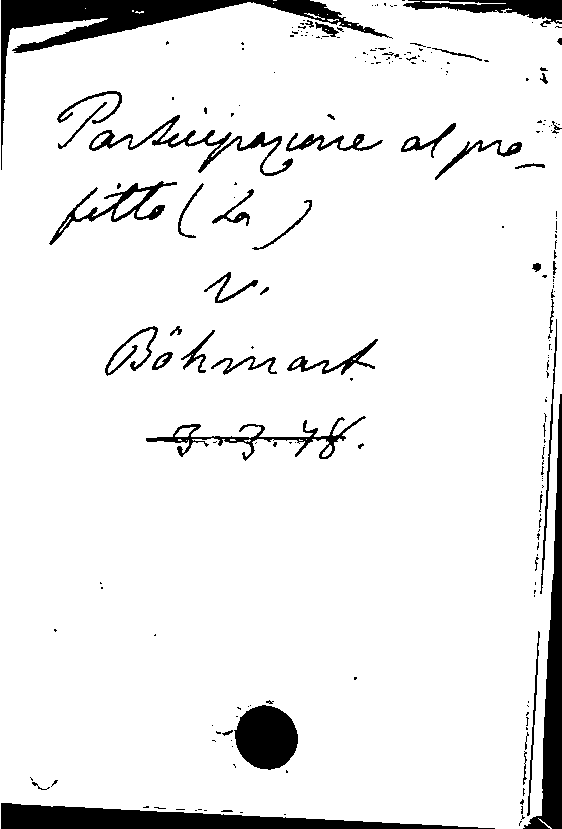 Participazione al pro_
fitto (La)
v.
Böhmart
3.3.78.